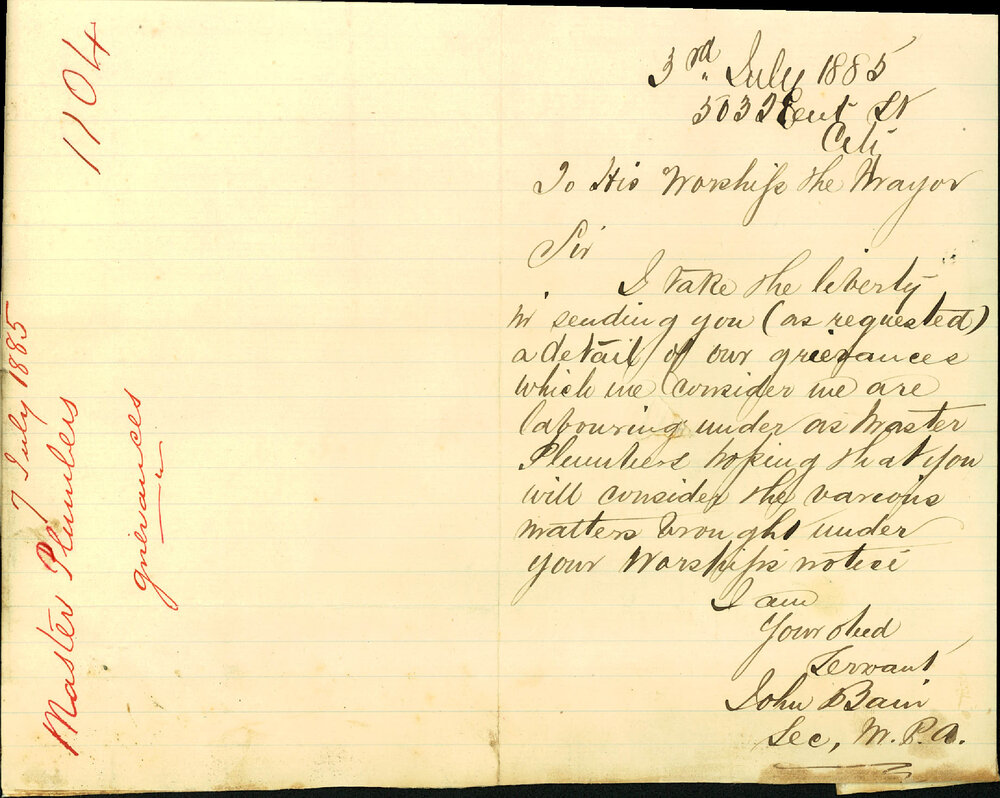 1104
7 July 1885
Master Plumbers
grievances
3rd July 1885
503 Kent St
City
To His Worship the Mayor
Sir
I take the liberty
in sending you (as requested)
a detail of our grievances
which we consider we are
labouring under as Master
Plumbers hoping that you
will consider the various
matters brought under
your Worship's notice
I am
Your obed
Servant
John Bain
Sec, M.P.A.